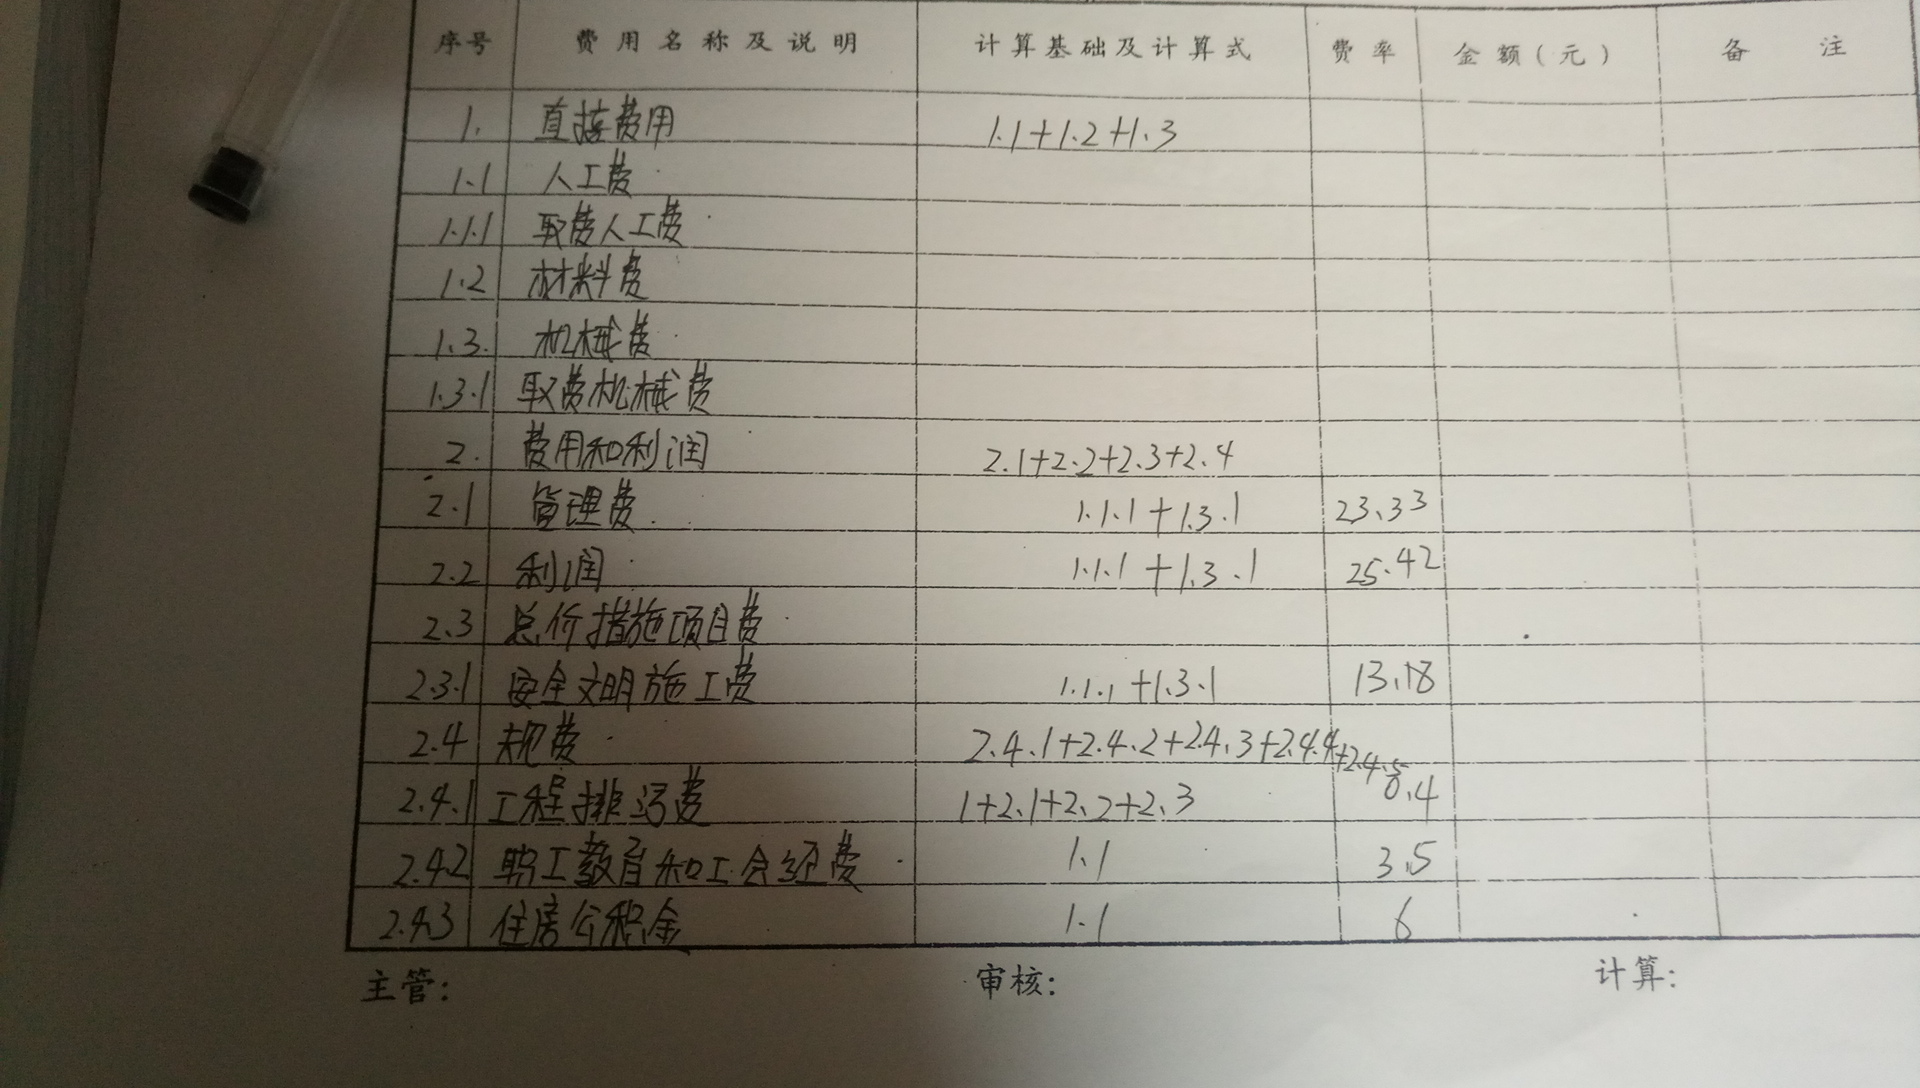 序号 费用名称及说明 计算基础及计算式 费率 金额(元) 备注
1. 直接费用 1.1+1.2+1.3
1.1 人工费
1.1.1 取费人工费
1.2 材料费
1.3. 机械费
1.3.1 取费机械费
2. 费用和利润 2.1+2.2+2.3+2.4
2.1 管理费 1.1.1+1.3.1 23.33
2.2 利润 1.1.1+1.3.1 25.42
2.3 总价措施项目费
2.3.1 安全文明施工费 1.1.1+1.3.1 13.18
2.4 规费 2.4.1+2.4.2+2.4.3+2.4.4+2.4.5
2.4.1 工程排污费 1+2.1+2.2+2.3 0.4
2.4.2 职工教育和工会经费 1.1 3.5
2.4.3 住房公积金 1.1 6
主管: 审核: 计算: